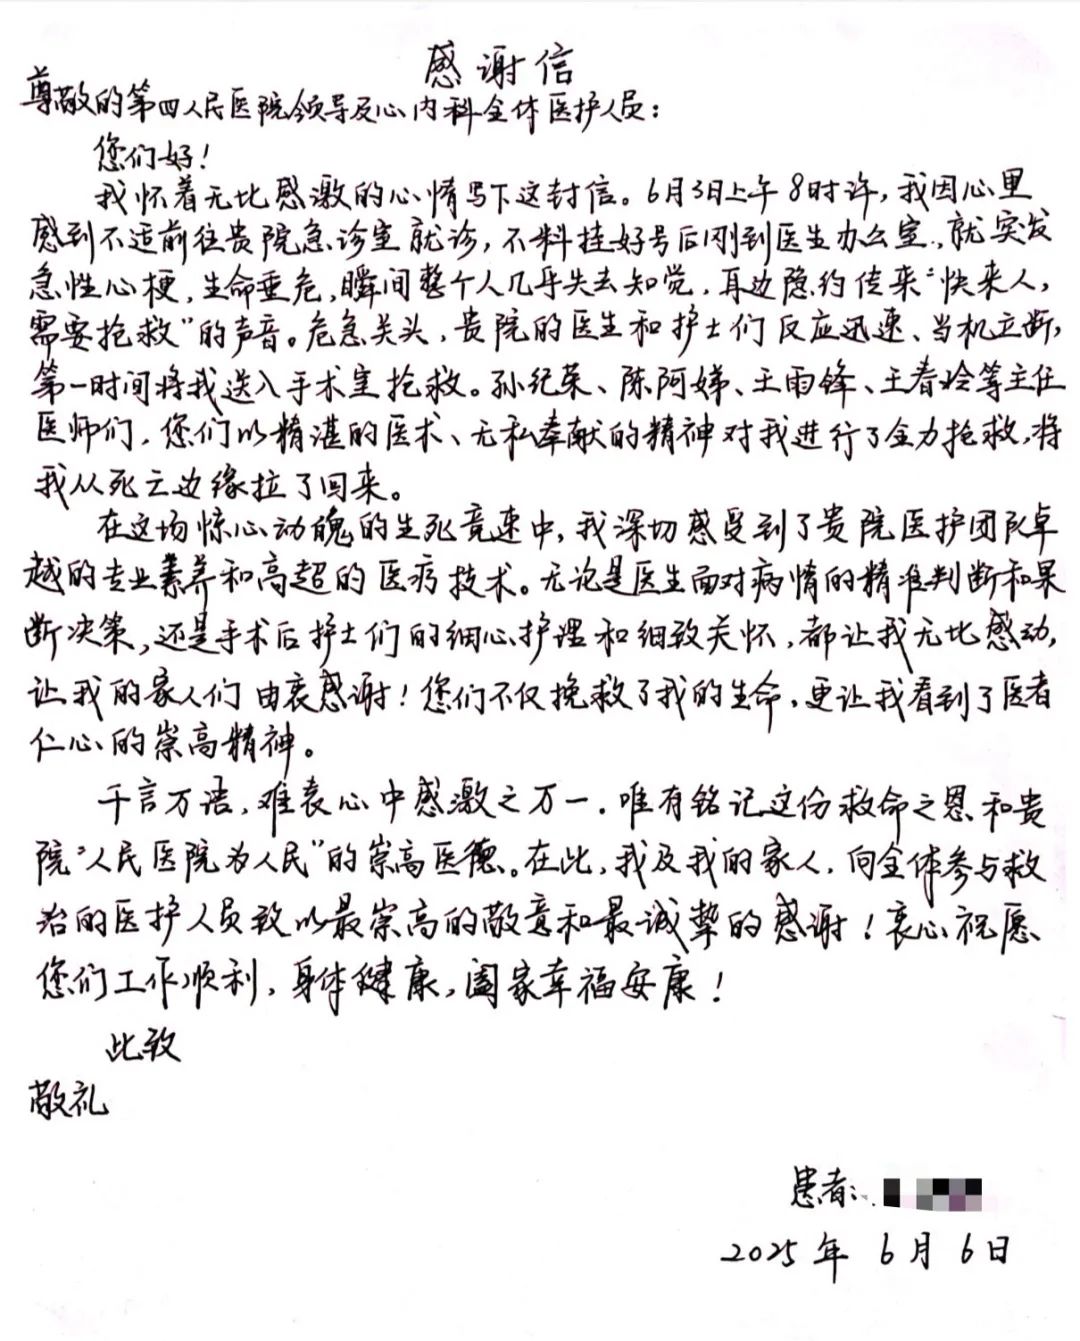 感谢信
尊敬的第四人民医院领导及心内科全体医护人员：
您们好！
我怀着无比感激的心情写下这封信。6月3日上午8时许，我因心里
感到不适前往贵院急诊室就诊，不料挂好号后刚到医生办公室，就突发
急性心梗，生命垂危，瞬间整个人几乎失去知觉，耳边隐约传来“快来人，
需要抢救”的声音。危急关头，贵院的医生和护士们反应迅速、当机立断，
第一时间将我送入手术室抢救。孙纪荣、陈阿娣、王雨锋、王春玲等主任
医师们，您们以精湛的医术、无私奉献的精神对我进行了全力抢救，将
我从死亡边缘拉了回来。
在这场惊心动魄的生死竞速中，我深切感受到了贵院医护团队卓
越的专业素养和高超的医疗技术。无论是医生面对病情的精准判断和果
断决策，还是手术后护士们的细心护理和细致关怀，都让我无比感动，
让我的家人们由衷感谢！您们不仅挽救了我的生命，更让我看到了医者
仁心的崇高精神。
千言万语，难表心中感激之万一，唯有铭记这份救命之恩和贵
院“人民医院为人民”的崇高医德。在此，我及我的家人，向全体参与救
治的医护人员致以最崇高的敬意和最诚挚的感谢！衷心祝愿
您们工作顺利，身体健康，阖家幸福安康！
此致
敬礼
患者：
2025年6月6日